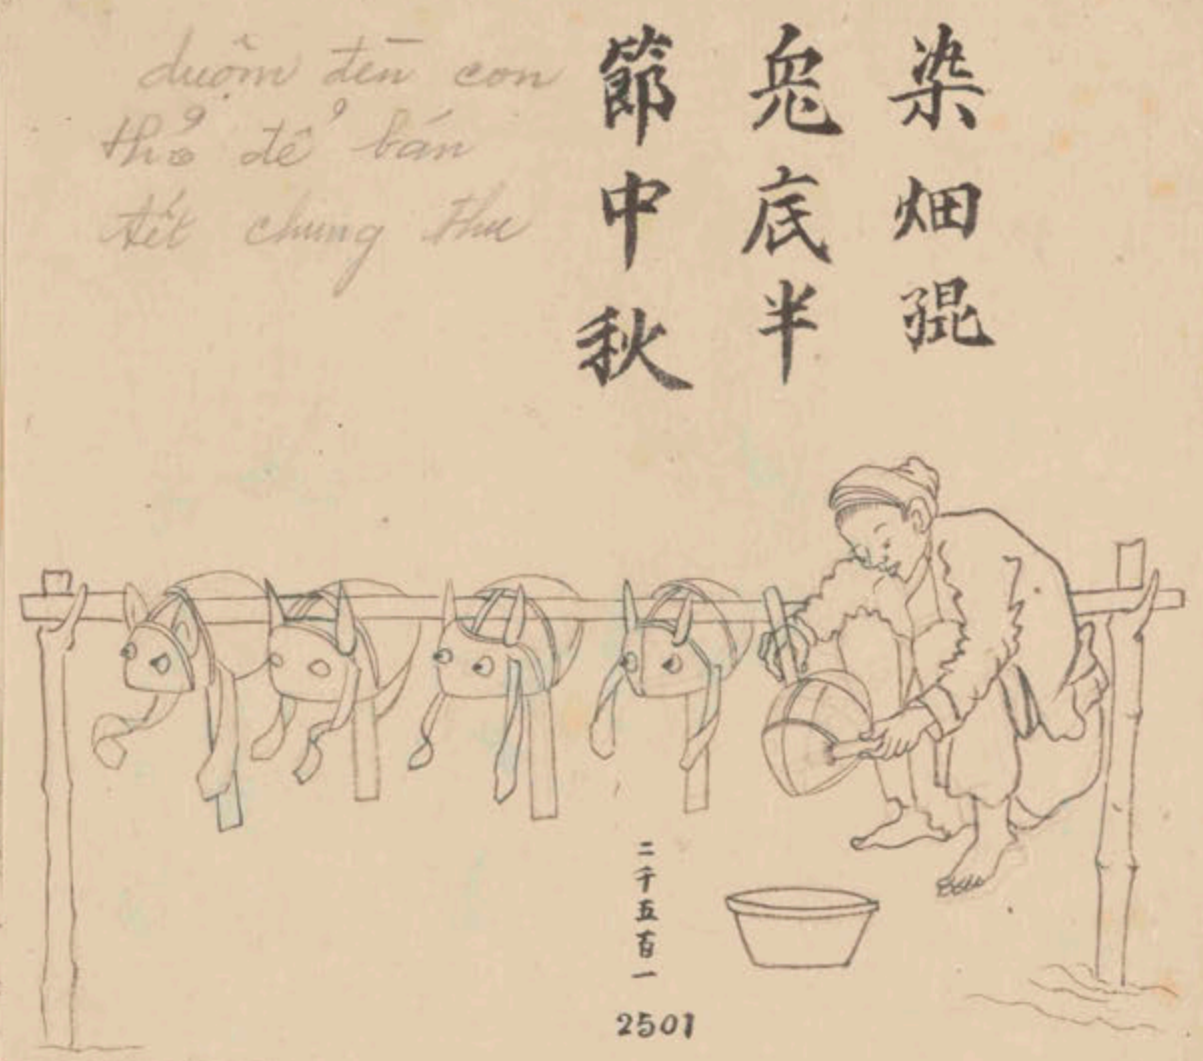 染畑𡥵
兔底半
節中秋
duộm đèn con
thỏ để bán
tết chung thu
二千五百一
2501